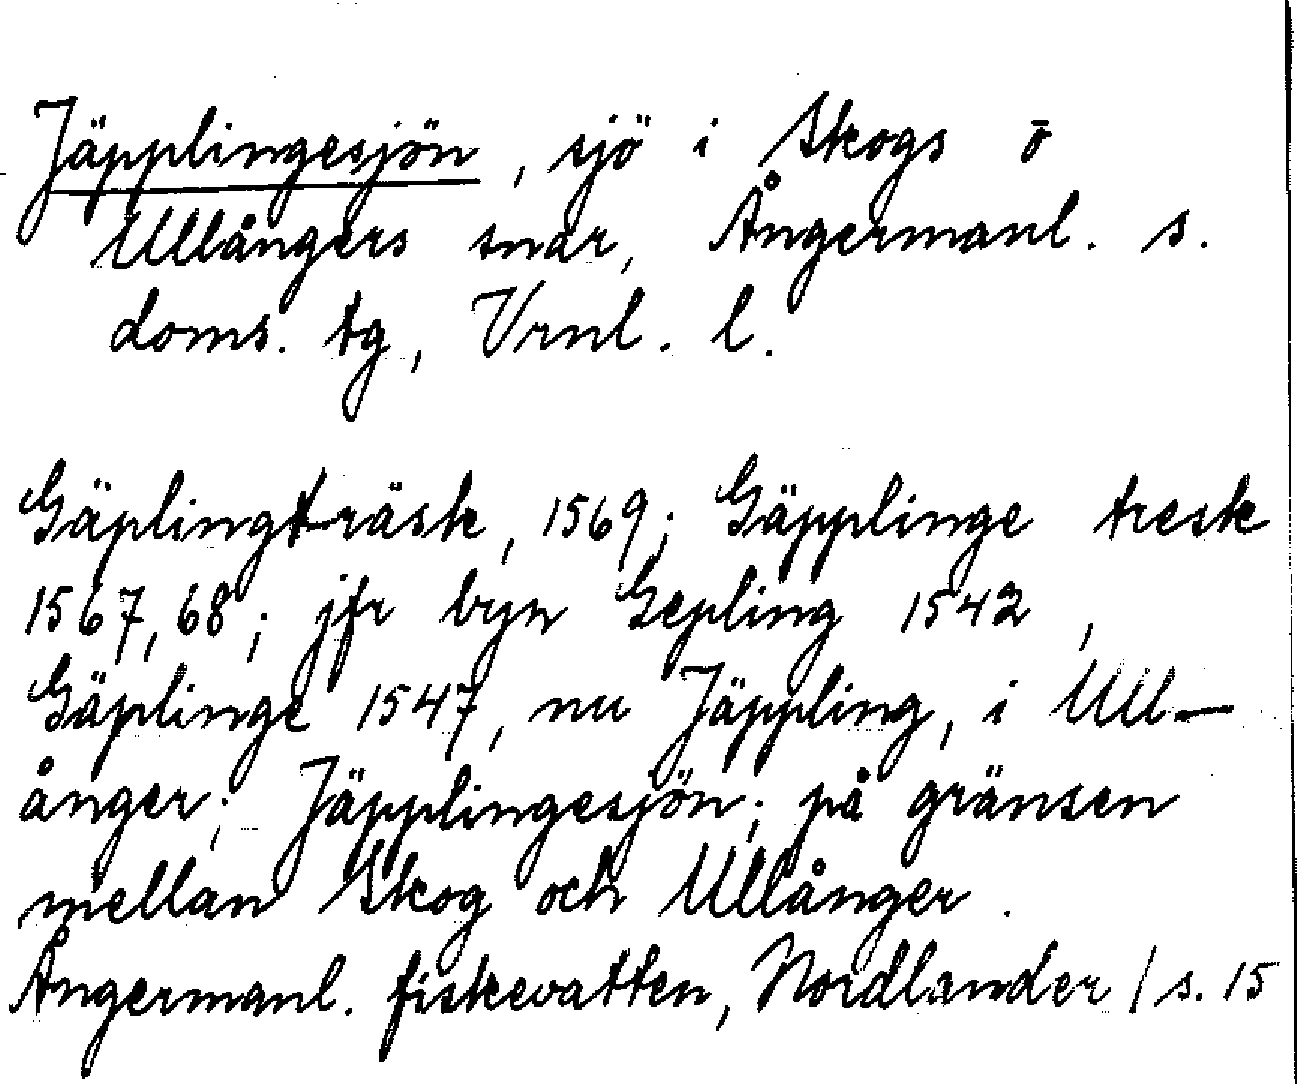 Jäpplingesjön, sjö i Skogs o
Ullångers snar, Ångermanl. s.
doms. tg, Vrnl. l.
Gäplingträsk, 1569; Gäpplinge tresk
1567, 68; jfr byn Gepling 1542,
Gäplinge 1547, nu Jäppling, i Ull-
ånger; Jäpplingesjön; på gränsen
mellan Skog och Ullånger.
Ångermanl. fiskevatten, Nordlander / s. 15